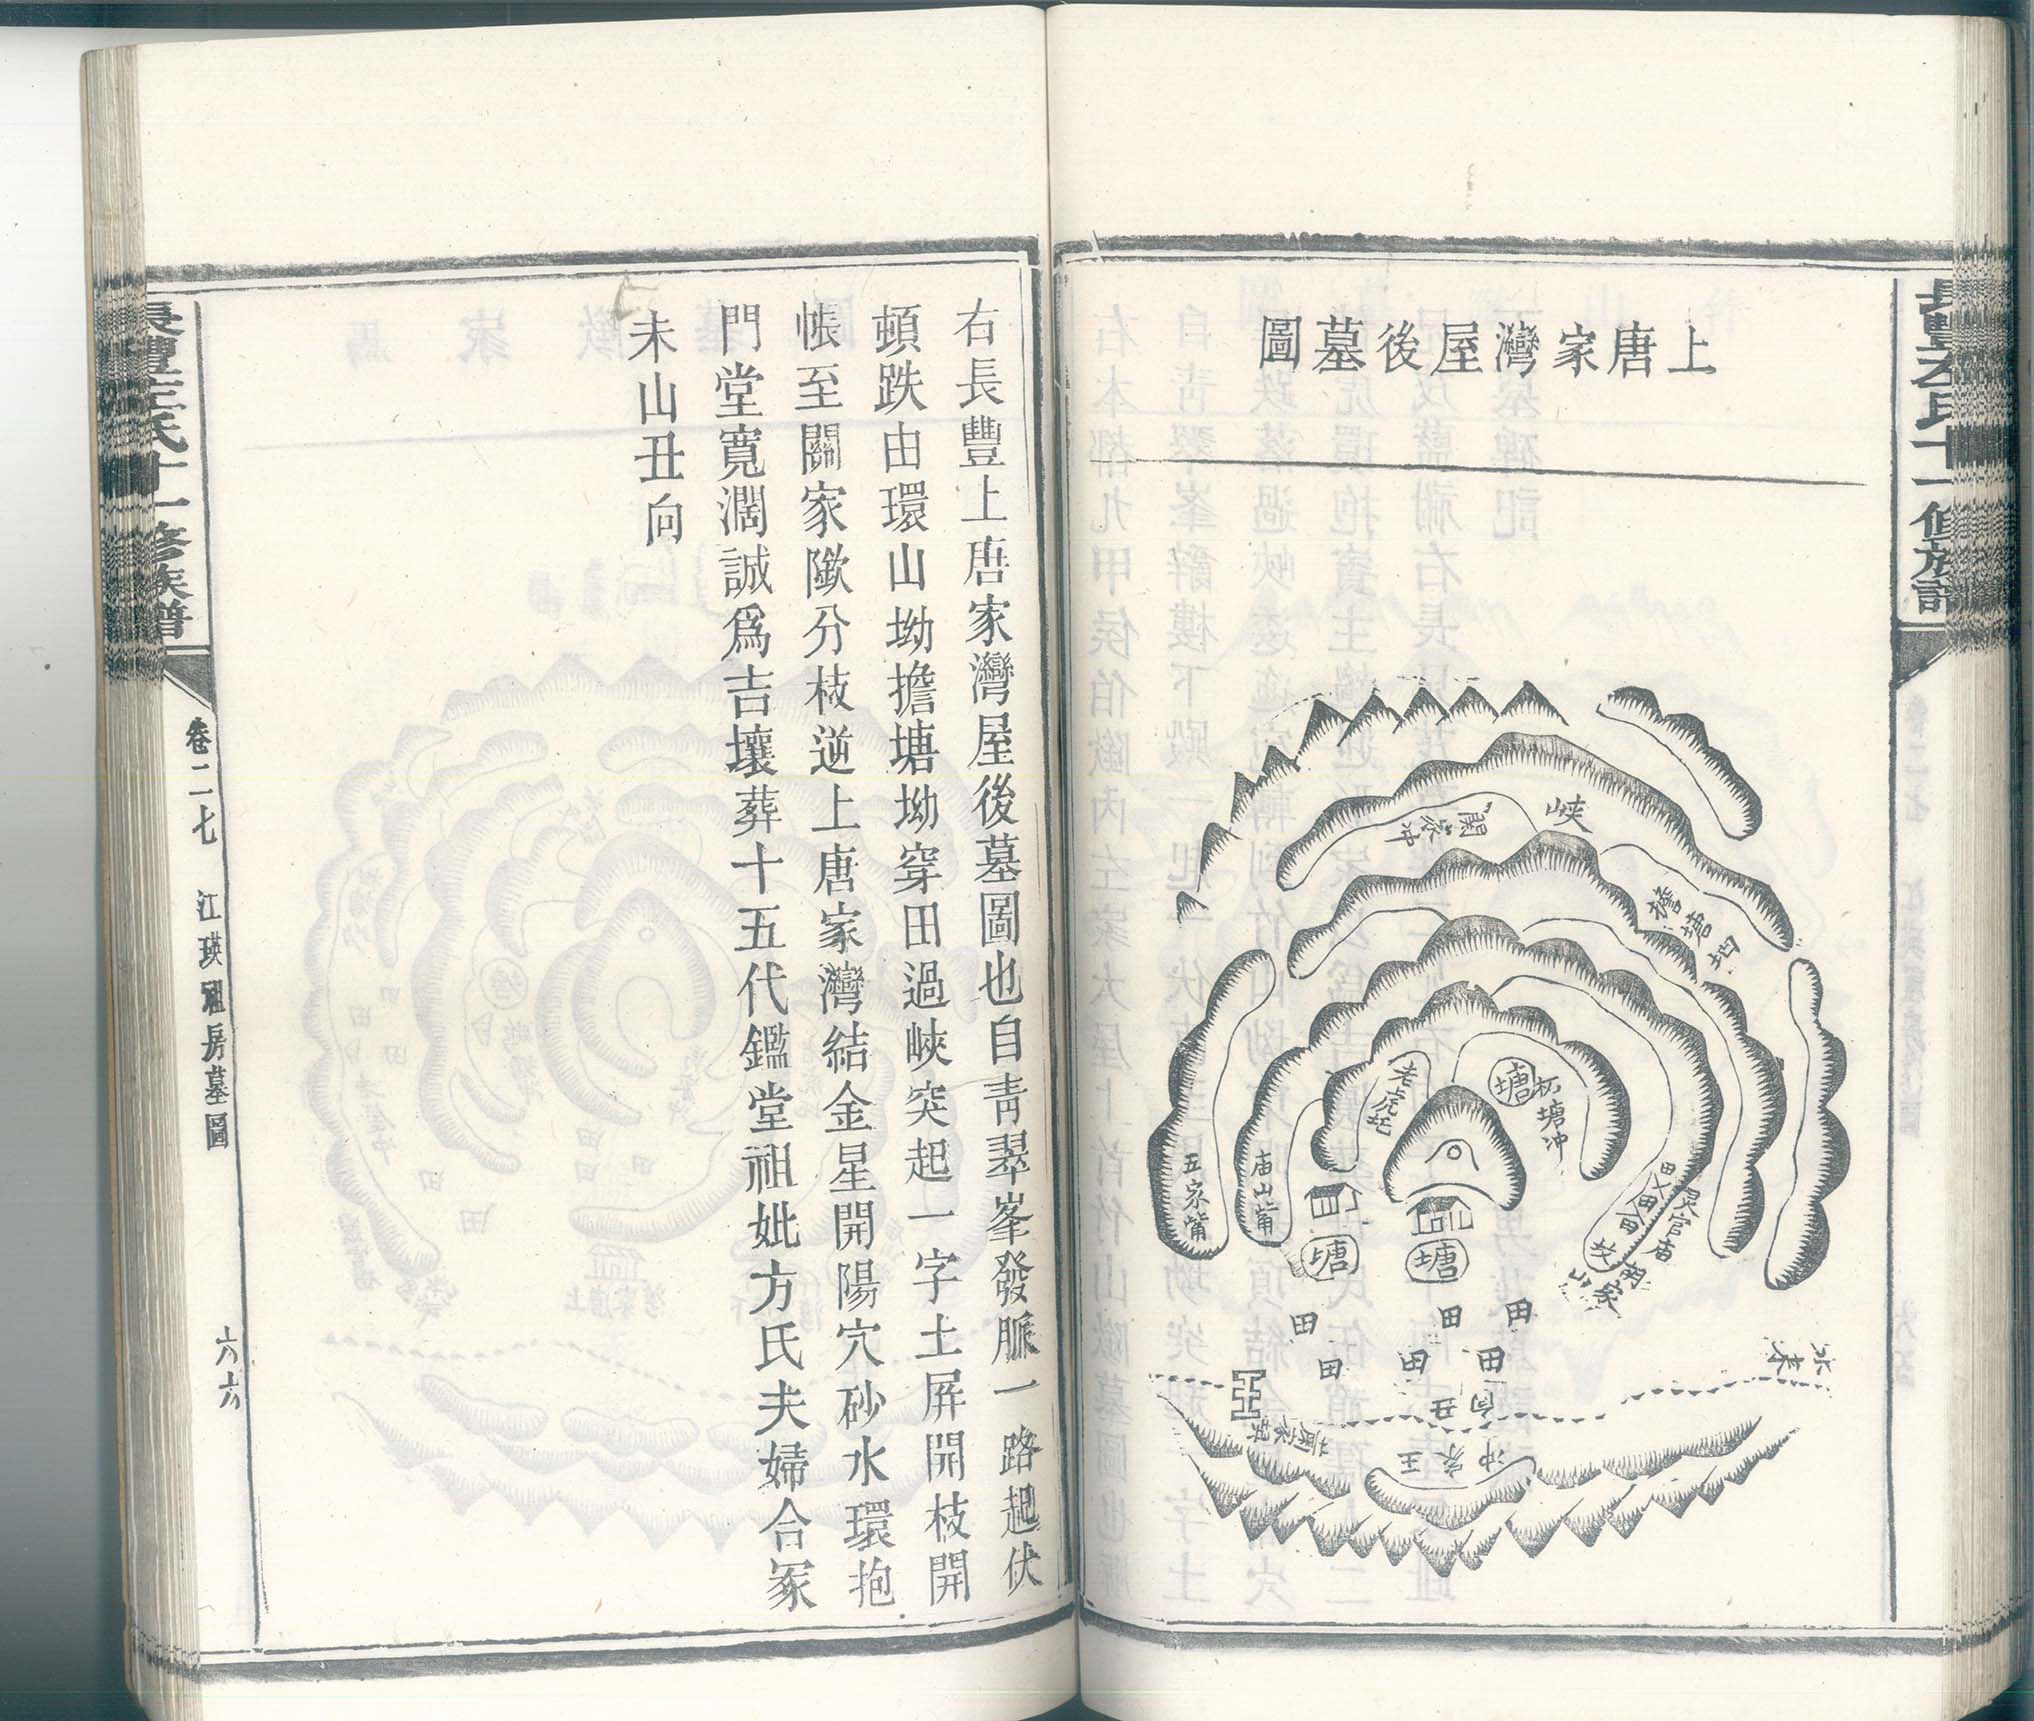 長豐左氏十一修族譜
上唐家灣屋後墓圖
峽
關家沖
擔塘坳
老虎坑
塘
杯塘沖
五家觜
庙山觜
田田田
灵官庙
塘
塘
田
田
田
田
田
田
丑向
水来
王家沖
右長豐上唐家灣屋後墓圖也自青翠峯發脈一路起伏
頓跌由環山坳擔塘坳穿田過峽突起一字土屏開枝開
帳至關家歐分枝逆上唐家灣結金星開陽穴砂水環抱
門堂寬濶誠爲吉壤葬十五代鑑堂祖妣方氏夫婦合冢
未山丑向
長豐左氏十一修族譜
卷二七
江瑛祖房墓圖
六六